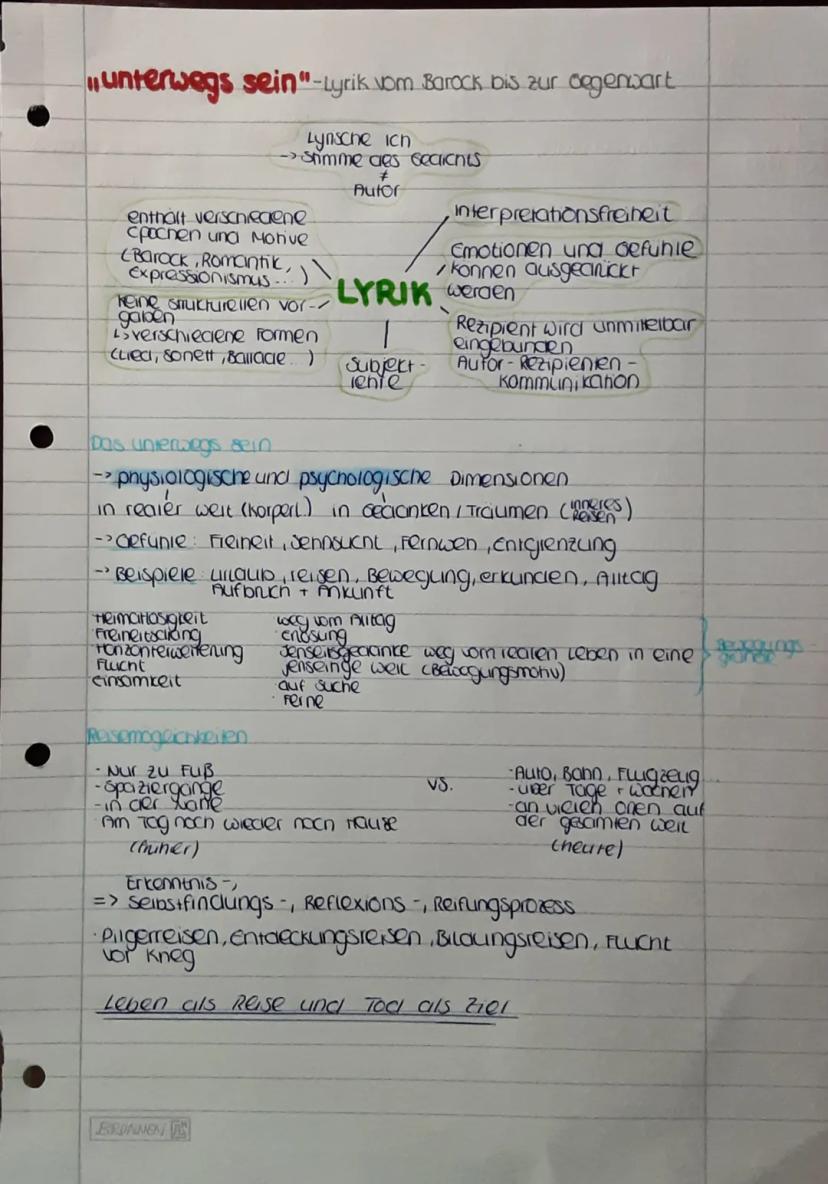 „unterwegs sein" - Lyrik vom Barock bis zur Gegenwart
Lyrische Ich
-> Stimme des Gedichts
≠
Autor
enthält verschiedene
Epochen und Motive
(Barock, Romantik,
Expressionismus...)
keine strukturellen Vor-
gaben
↳ verschiedene Formen
(Lied, Sonett, Ballade...)
LYRIK
Subjekt-
ivität
Interpretationsfreiheit
Emotionen und Gefühle
können ausgedrückt
werden
Rezipient wird unmittelbar
eingebunden
Autor-Rezipienten-
Kommunikation
Das unterwegs sein
-> physiologische und psychologische Dimensionen
in realer Welt (körperl.) in Gedanken / Träumen (inneres Reisen)
-> Gefühle: Freiheit, Sehnsucht, Fernweh, Entgrenzung
-> Beispiele: Urlaub, reisen, Bewegung, erkunden, Alltag
Aufbruch + Ankunft
Heimatlosigkeit weg vom Alltag
Freiheitsdrang Erlösung
Horizonterweiterung Jenseitsgedanke weg vom realen Leben in eine
Flucht jenseitige Welt (Bewegungsmotiv)
Einsamkeit auf Suche
Ferne
Bewegungs
gründe
Reisemöglichkeiten
· Nur zu Fuß
- Spaziergänge
- in der Nähe
Am Tag noch wieder nach Hause
(früher)
vs.
· Auto, Bahn, Flugzeug
- über Tage + Wochen
- an vielen Orten auf
der gesamten Welt
(heute)
Erkenntnis-,
=> Selbstfindungs-, Reflexions-, Reifungsprozess
· Pilgerreisen, Entdeckungsreisen, Bildungsreisen, Flucht
vor Krieg
Leben als Reise und Tod als Ziel
BRUNNEN